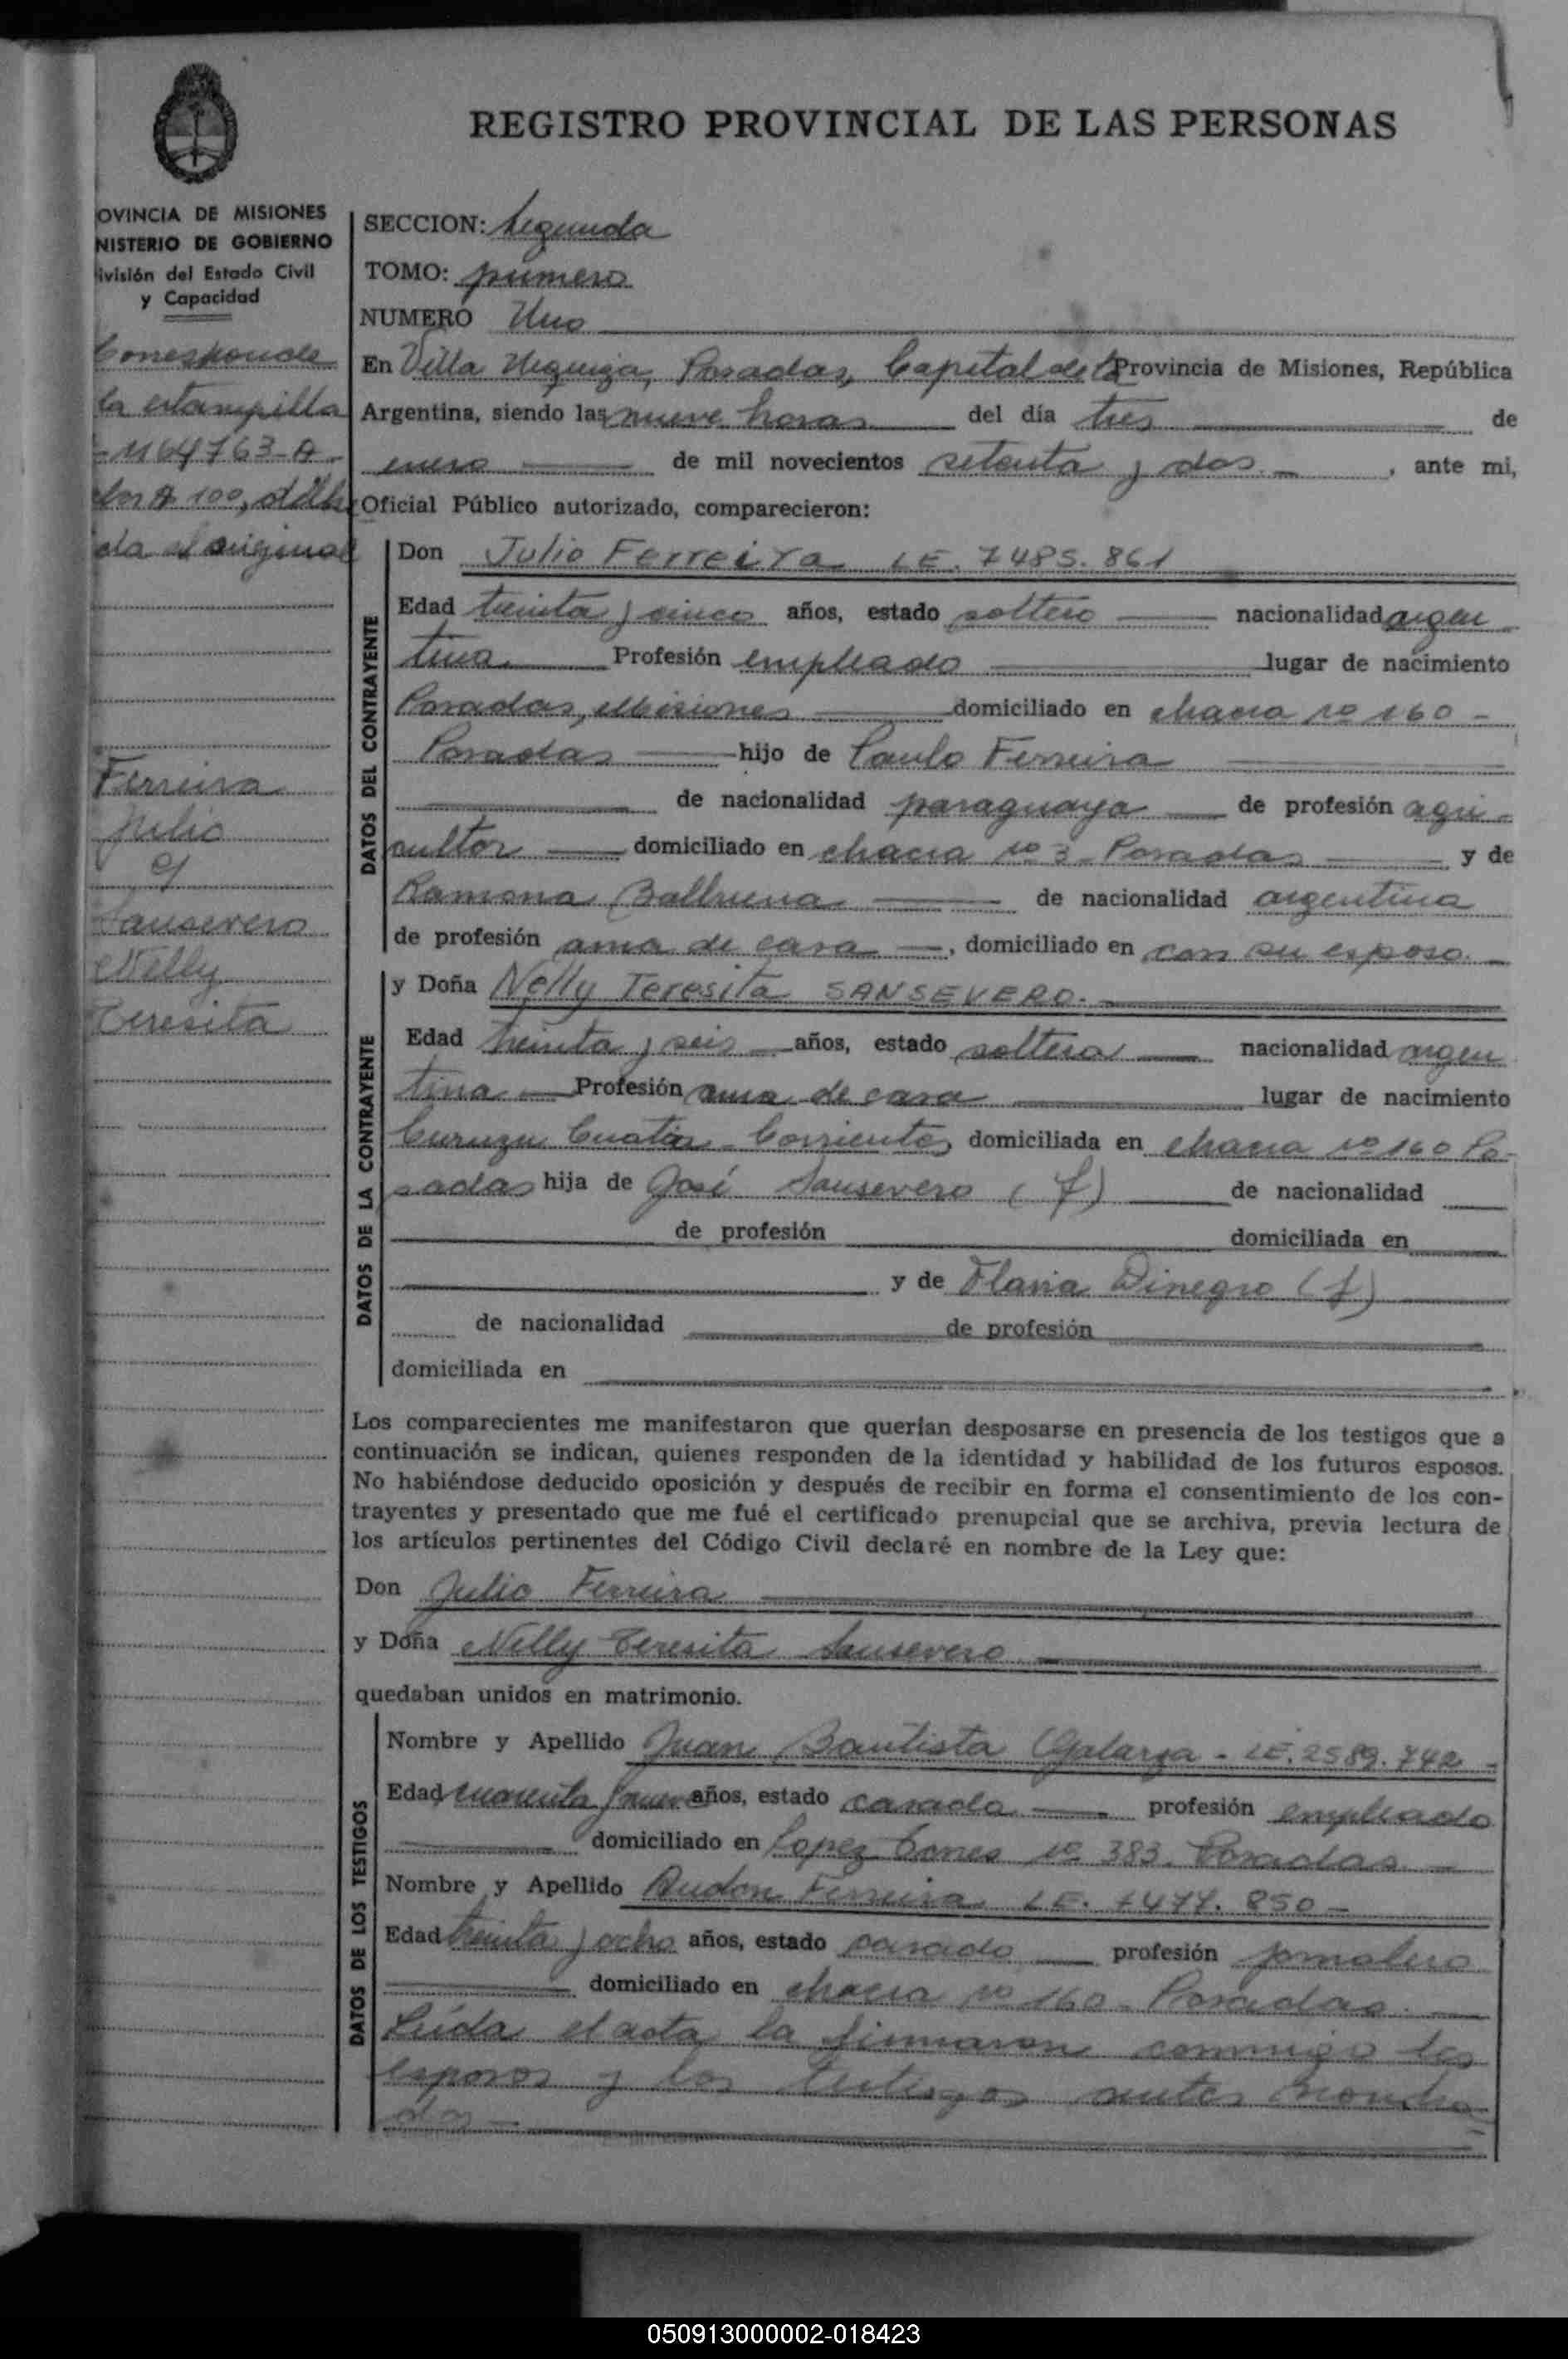 REGISTRO PROVINCIAL DE LAS PERSONAS
OVINCIA DE MISIONES
NISTERIO DE GOBIERNO
ivisión del Estado Civil
y Capacidad
Corresponde
la estampilla
1164763-A
100,
el original
Ferreira
Julio
c/
Sansevero
Nelly
Teresita
SECCION: Segunda
TOMO: primero
NUMERO Uno
En Villa Urquiza, Posadas, Capital de la Provincia de Misiones, República
Argentina, siendo las nueve horas del día tres de
enero de mil novecientos setenta y dos , ante mi,
Oficial Público autorizado, comparecieron:
DATOS DEL CONTRAYENTE
Don Julio Ferreira LE. 7485.861
Edad treinta y cinco años, estado soltero nacionalidad argen
tina Profesión empleado lugar de nacimiento
Posadas, Misiones domiciliado en chacra nº 160 -
Posadas hijo de Paulo Ferreira
de nacionalidad paraguaya de profesión agri-
cultor domiciliado en chacra nº 3 - Posadas y de
Ramona Balbuena de nacionalidad argentina
de profesión ama de casa , domiciliado en con su esposo
DATOS DE LA CONTRAYENTE
y Doña Nelly Teresita SANSEVERO.
Edad treinta y seis años, estado soltera nacionalidad argen
tina Profesión ama de casa lugar de nacimiento
Curuzu Cuatia - Corrientes domiciliada en chacra nº 160 Po-
sadas hija de José Sansevero (f) de nacionalidad
de profesión domiciliada en
y de Flavia Dinegro (f)
de nacionalidad de profesión
domiciliada en
Los comparecientes me manifestaron que querían desposarse en presencia de los testigos que a
continuación se indican, quienes responden de la identidad y habilidad de los futuros esposos.
No habiéndose deducido oposición y después de recibir en forma el consentimiento de los con-
trayentes y presentado que me fué el certificado prenupcial que se archiva, previa lectura de
los artículos pertinentes del Código Civil declaré en nombre de la Ley que:
Don Julio Ferreira
y Doña Nelly Teresita Sansevero
quedaban unidos en matrimonio.
DATOS DE LOS TESTIGOS
Nombre y Apellido Juan Bautista Galarza - LE. 2589.742 -
Edad cuarenta y nueve años, estado casado profesión empleado
domiciliado en Lopez Torres nº 383 Posadas
Nombre y Apellido Rudon Ferreira LE. 7477.850 -
Edad treinta y ocho años, estado casado profesión jornalero
domiciliado en chacra nº 160 - Posadas.
Leída el acta la firmaron conmigo los
esposos y los testigos antes nombra
dos
050913000002-018423